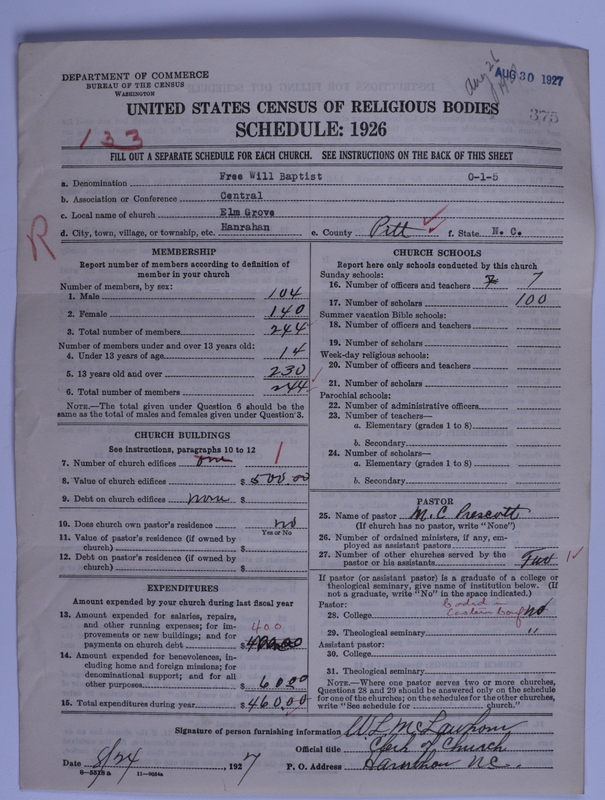 DEPARTMENT OF COMMERCE
BUREAU OF THE CENSUS
WASHINGTON
Aug 26
AUG 30 1927
375
UNITED STATES CENSUS OF RELIGIOUS BODIES
SCHEDULE: 1926
133
FILL OUT A SEPARATE SCHEDULE FOR EACH CHURCH. SEE INSTRUCTIONS ON THE BACK OF THIS SHEET
a. Denomination Free Will Baptist 0-1-5
b. Association or Conference Central
c. Local name of church Elm Grove
d. City, town, village, or township, etc. Hanrahan e. County Pitt f. State N. C.
R
MEMBERSHIP
Report number of members according to definition of
member in your church
Number of members, by sex:
1. Male 104
2. Female 140
3. Total number of members 244
Number of members under and over 13 years old:
4. Under 13 years of age 14
5. 13 years old and over 230
6. Total number of members 244
NOTE.—The total given under Question 6 should be the
same as the total of males and females given under Question 3.
CHURCH BUILDINGS
See instructions, paragraphs 10 to 12
7. Number of church edifices one 1
8. Value of church edifices $ 500.00
9. Debt on church edifices none $
10. Does church own pastor's residence no
Yes or No
11. Value of pastor's residence (if owned by
church) $
12. Debt on pastor's residence (if owned by
church) $
EXPENDITURES
Amount expended by your church during last fiscal year
13. Amount expended for salaries, repairs,
and other running expenses; for im- 400
provements or new buildings; and for
payments on church debt $ 400.00
14. Amount expended for benevolences, in-
cluding home and foreign missions; for
denominational support; and for all
other purposes $ 60.00
15. Total expenditures during year $ 460.00
CHURCH SCHOOLS
Report here only schools conducted by this church
Sunday schools:
16. Number of officers and teachers 7 7
17. Number of scholars 100
Summer vacation Bible schools:
18. Number of officers and teachers
19. Number of scholars
Week-day religious schools:
20. Number of officers and teachers
21. Number of scholars
Parochial schools:
22. Number of administrative officers
23. Number of teachers—
a. Elementary (grades 1 to 8)
b. Secondary
24. Number of scholars—
a. Elementary (grades 1 to 8)
b. Secondary
PASTOR
25. Name of pastor M. C. Prescott
(If church has no pastor, write "None")
26. Number of ordained ministers, if any, em-
ployed as assistant pastors
27. Number of other churches served by the
pastor or his assistants Two
If pastor (or assistant pastor) is a graduate of a college or
theological seminary, give name of institution below. (If
not a graduate, write "No" in the space indicated.)
Pastor:
28. College Eastern no
29. Theological seminary "
Assistant pastor:
30. College
31. Theological seminary
NOTE.—Where one pastor serves two or more churches,
Questions 28 and 29 should be answered only on the schedule
for one of the churches; on the schedules for the other churches,
write "See schedule for church."
Signature of person furnishing information W L McLawhorn
Official title Clerk of Church
Date 8/24, 1927 P. O. Address N C.
8—5518 a 11—9054a